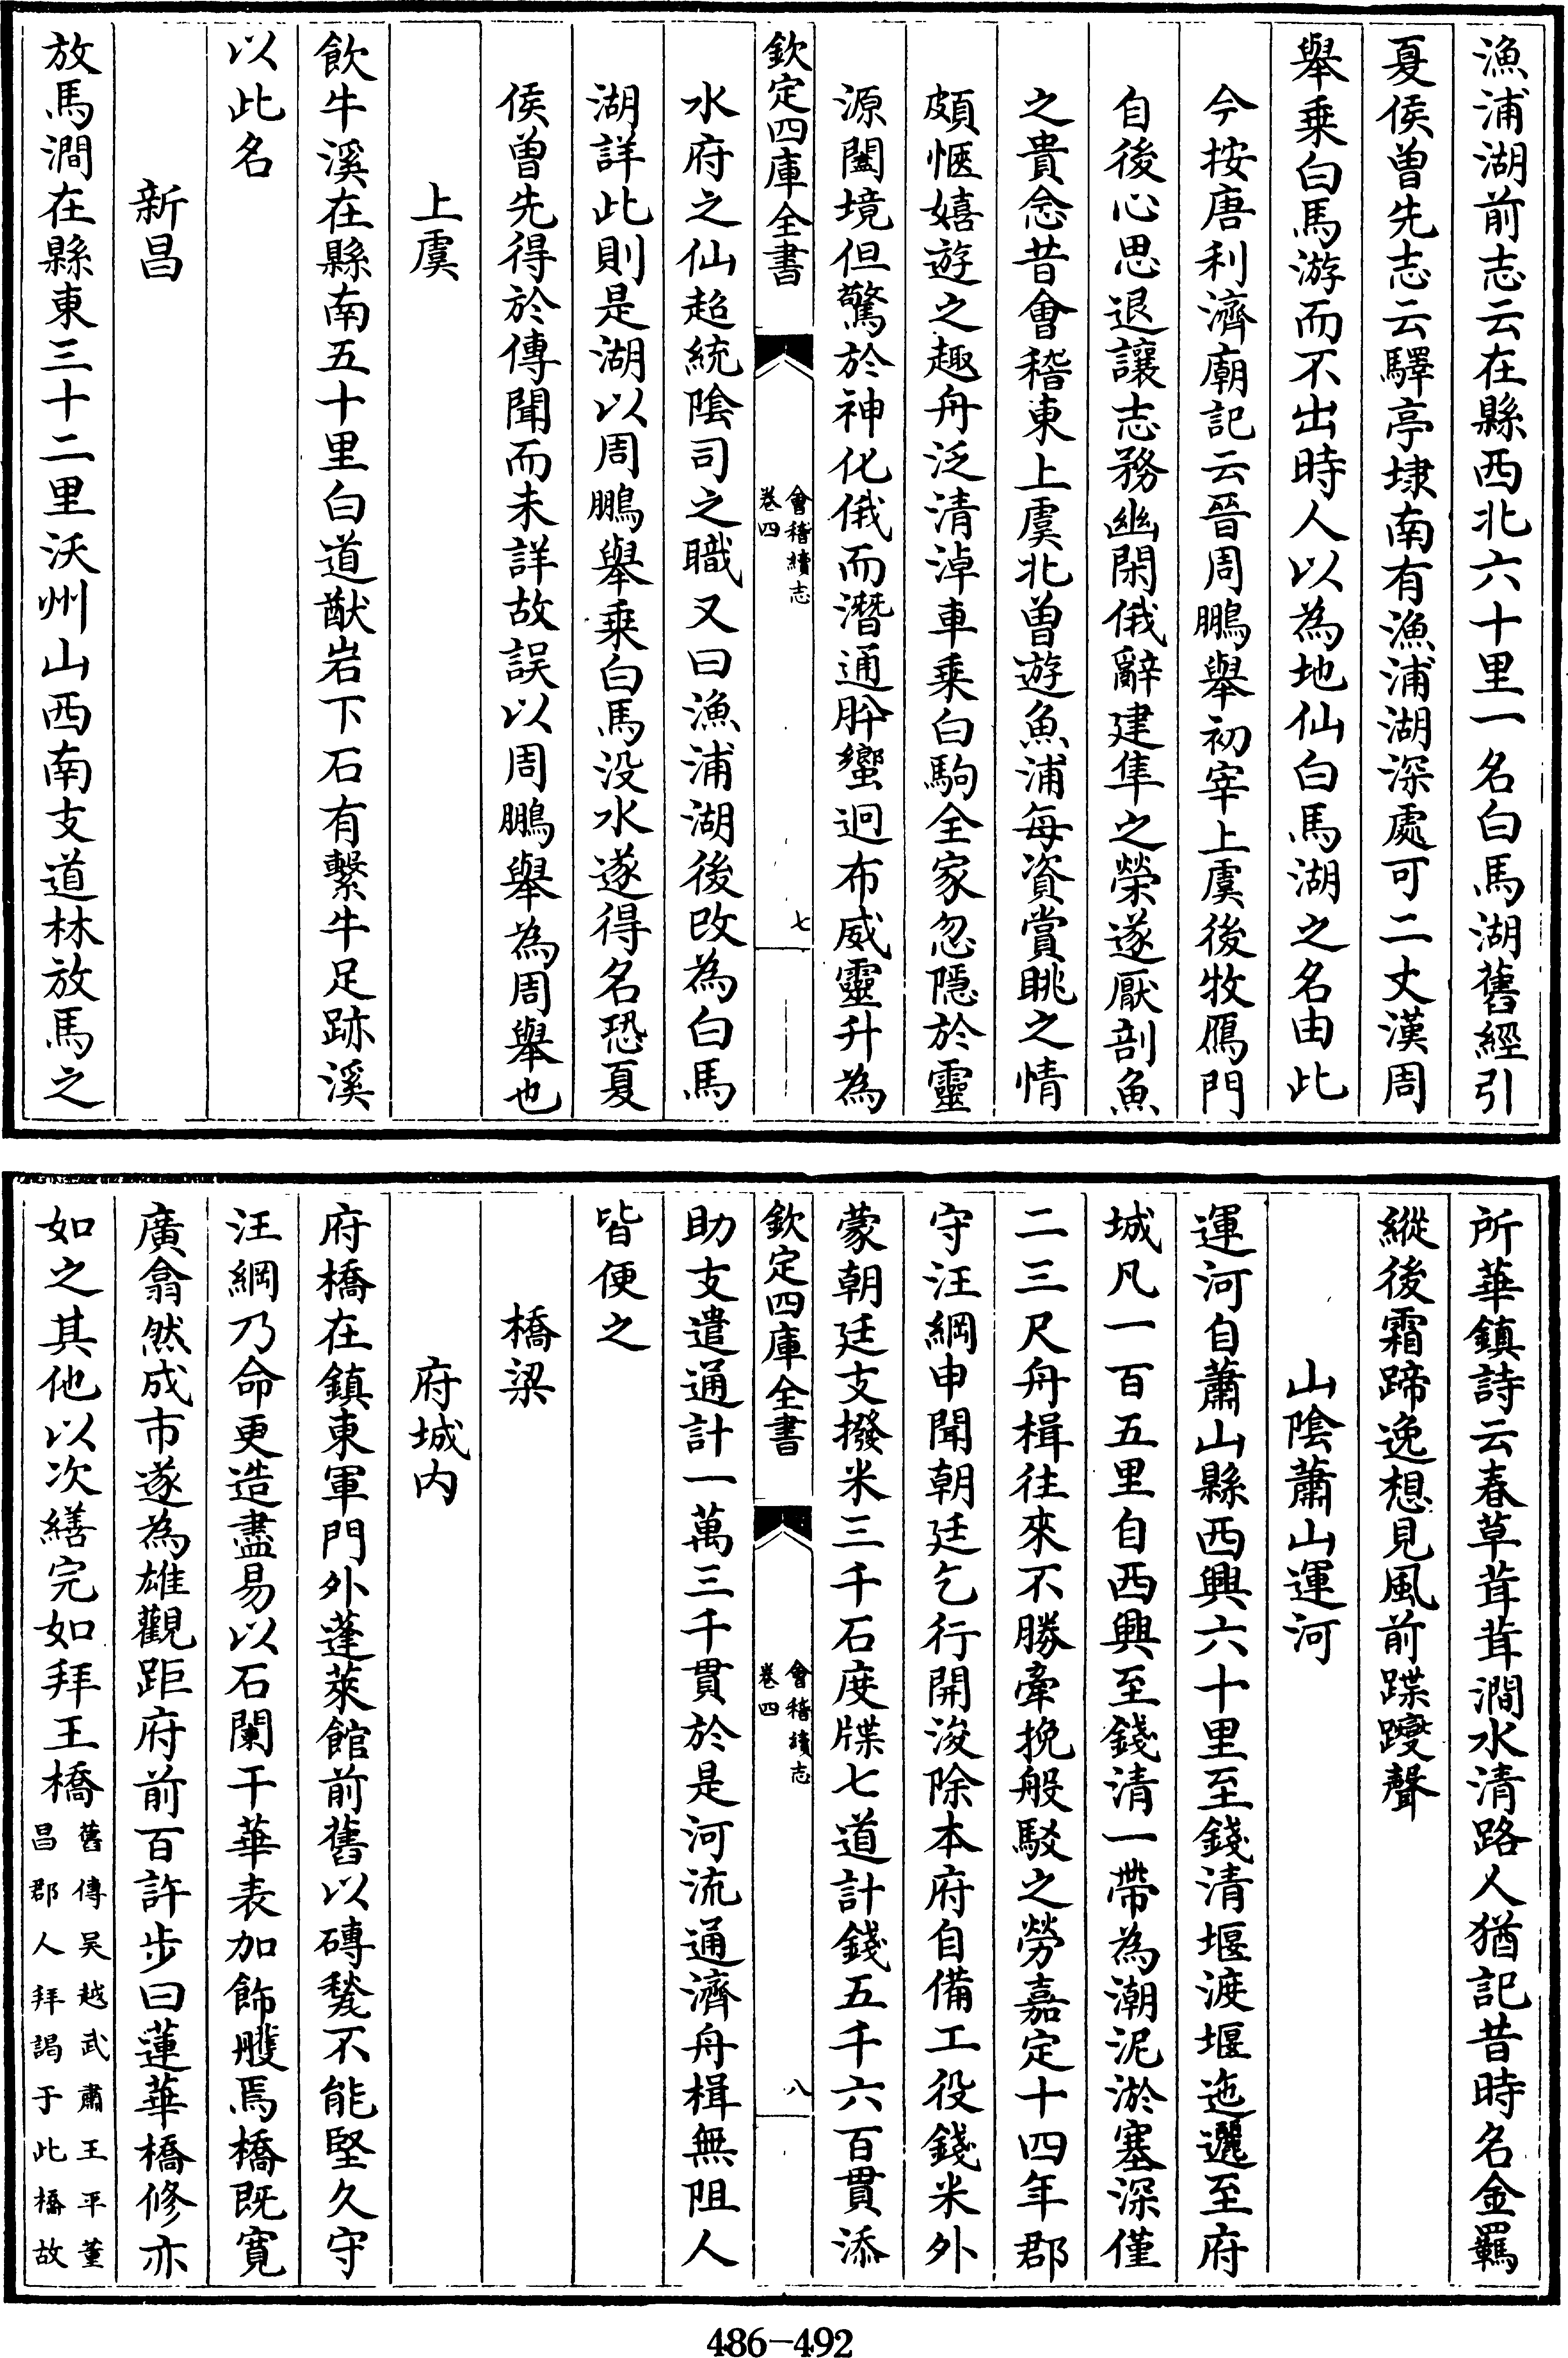 漁浦湖前志云在縣西北六十里一名白馬湖舊經引
夏侯曽先志云驛亭埭南有漁浦湖深處可二丈漢周
舉乗白馬游而不出時人以為地仙白馬湖之名由此
今按唐利濟廟記云晉周鵬舉初宰上虞後牧鴈門
自後心思退讓志務幽閑俄辭建隼之榮遂厭剖魚
之貴念昔會稽東上虞北曽遊魚浦每資賞眺之情
頗愜嬉遊之趣舟泛清淖車乗白駒全家忽隱於靈
源闔境但驚於神化俄而潛通肸蠁迥布威靈升為
欽定四庫全書
會稽續志
卷四
七
水府之仙超統陰司之職又曰漁浦湖後改為白馬
湖詳此則是湖以周鵬舉乗白馬没水遂得名恐夏
侯曽先得於傳聞而未詳故誤以周鵬舉為周舉也
上虞
飲牛溪在縣南五十里白道猷岩下石有繫牛足跡溪
以此名
新昌
放馬澗在縣東三十二里沃州山西南支道林放馬之
所華鎮詩云春草茸茸澗水清路人猶記昔時名金羈
縱後霜蹄逸想見風前蹀躞聲
山陰蕭山運河
運河自蕭山縣西興六十里至錢清堰渡堰迤邐至府
城凡一百五里自西興至錢清一帶為潮泥淤塞深僅
二三尺舟楫往來不勝牽挽般駁之勞嘉定十四年郡
守汪綱申聞朝廷乞行開浚除本府自備工役錢米外
蒙朝廷支撥米三千石度牒七道計錢五千六百貫添
欽定四庫全書
會稽續志
卷四
八
助支遣通計一萬三千貫於是河流通濟舟楫無阻人
皆便之
橋梁
府城内
府橋在鎮東軍門外蓬萊館前舊以磚甃不能堅久守
汪綱乃命更造盡易以石闌干華表加飾艧焉橋既寛
廣翕然成市遂為雄觀距府前百許步曰蓮華橋修亦
如之其他以次繕完如拜王橋
舊傳吴越武肅王平董
昌郡人拜謁于此橋故
486-492